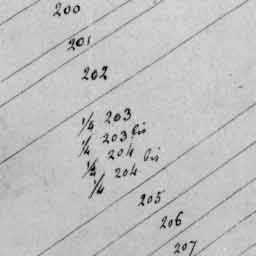 200
201
202
1/4 203
1/4 203 bis
1/4 204 bis
1/4 204 bis
205
206
207